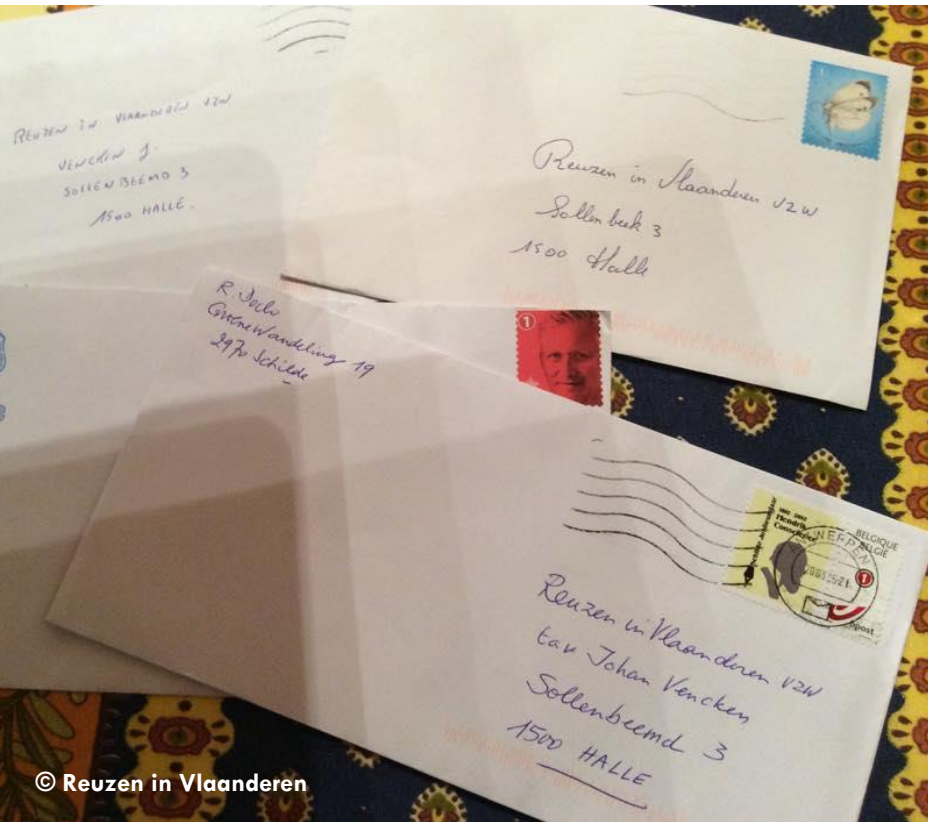 REUZEN IN VLAANDEREN VZW
VENCKEN J.
SOLLENBEEMD 3
1500 HALLE.
1
Reuzen in Vlaanderen VZW
Sollenbeek 3
1500 Halle
R. Joclo
Groene Wandeling 19
2970 Schilde
1
1812 - 2012
Hendrik
Conscience
BELGIQUE
BELGIË
1
bpost
Reuzen in Vlaanderen VZW
tav Johan Vencken
Sollenbeemd 3
1500 HALLE
© Reuzen in Vlaanderen